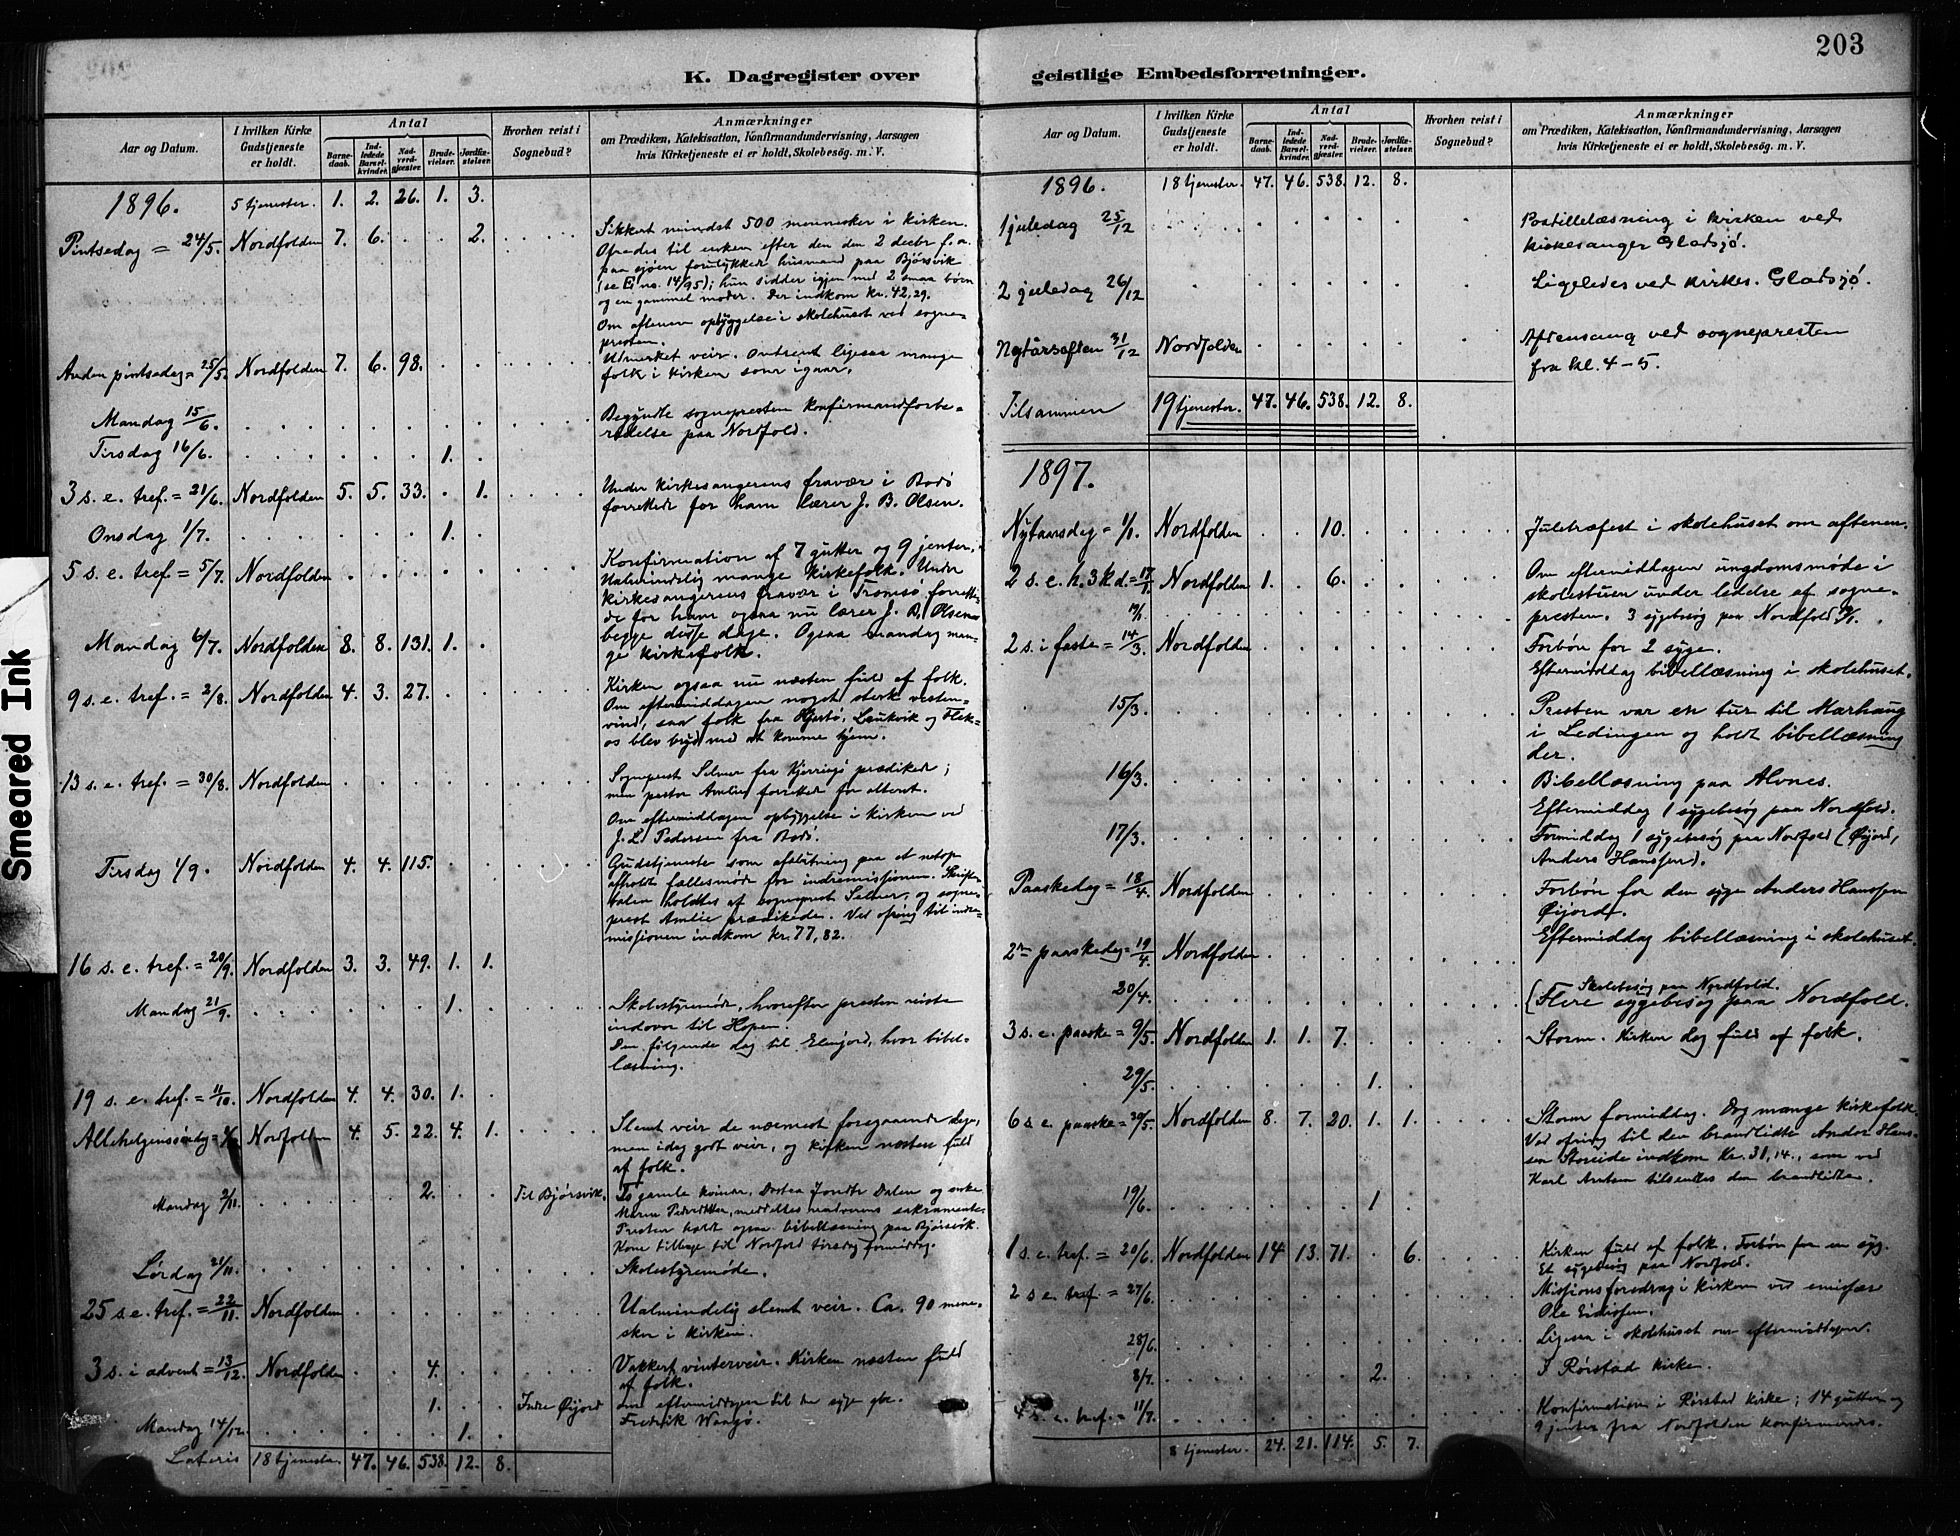 203
K. Dagregister over geistlige Embedsforretninger.
Aar og Datum.
I hvilken Kirke Gudstjeneste er holdt.
Antal
Barnedaab.
Indledede Barselkvinder.
Nadverdgjæster.
Brudevielser.
Jordfæstelser.
Hvorhen reist i Sognebud?
Anmærkninger
om Prædiken, Katekisation, Konfirmandundervisning, Aarsagen
hvis Kirketjeneste ei er holdt, Skolebesøg. m. V.
1896. 5 tjenester. 1. 2. 26. 1. 3.
Pintsedag = 24/5. Nordfolden 7. 6. . . 2.
Sikkert mindst 500 mennesker i kirken.
Ofredes til enken efter den den 2 decbr f. a.
paa sjøen forulykkede husmand paa Bjørsvik
(se E no. 14/95); hun sidder igjen med 2 smaa børn
og en gammel moder. Der indkom kr. 42,29.
Om aftenen opbyggelse i skolehuset ved sogne-
presten.
Anden pintsedag = 25/5. Nordfolden 7. 6. 98.
Udmerket veir. Omtrent ligesaa mange
folk i kirken som igaar.
Mandag 15/6.
Begyndte sognepresten konfirmandforbe-
redelse paa Nordfold.
Tirsdag 16/6. 1.
3 s. e. tref. = 21/6. Nordfolden 5. 5. 33. . 1.
Under kirkesangerens fravær i Bodø
forretted for ham lærer J. B. Olsen.
Onsdag 1/7. 1.
5 s. e. tref = 5/7. Nordfolden
Konfirmation af 7 gutter og 9 jenter.
Ualmindelig mange kirkefolk. Under
kirkesangerens fravær i Tromsø forrette-
de for ham ogsaa nu lærer J. B. Olsen
begge disse dage. Ogsaa mandag man-
ge kirkefolk.
Mandag 6/7. Nordfolden 8. 8. 131. 1.
9 s. e. tref. = 2/8. Nordfolden 4. 3. 27.
Kirken ogsaa nu næsten fuld af folk.
Om eftermiddagen noget sterk vesten-
vind, saa folk fra Hjertø, Laukvik og Flek-
os blev bryd med at komme hjem.
13 s. e. tref. = 30/8. Nordfolden
Sogneprest Selmer fra Kjerringø prædikede;
men pastor Amlie forretted for alteret.
Om eftermiddagen opbyggelse i kirken ved
J. L. Pedersen fra Bodø.
Tirsdag 1/9. Nordfolden 4. 4. 115.
Gudstjeneste som afslutning paa et netop
afholdt fællesmøde for indremissionen. Skrifte-
talen holdtes af sogneprest Selmer, og sogne-
prest Amlie prædikede. Ved ofring til indre-
missionen indkom kr. 77,82.
16 s. e. tref. = 20/9. Nordfolden 3. 3. 49. 1. 1.
Mandag 21/9. 1.
Skolestyremøde, hvorefter presten reiste
indover til Hopen.
Den følgende dag til Elvijord, hvor bibel-
læsning.
19 s. e. tref. = 11/10. Nordfolden 4. 4. 30. 1.
Nordfolden 4. 5. 22. 4. 1.
Slemt veir de nærmest foregaaende dage,
men idag godt veir, og kirken næsten fuld
af folk.
Mandag 2/11. 2. Til Bjørsvik.
To gamle kvinder, Dortea Dalen og enke
meddeltes nadverens sakramente.
Presten holdt ogsaa bibellæsning paa Bjørsvik.
Kom tilbage til Nordfold tirsdag formiddag.
Lørdag 21/11.
Skolestyremøde.
25 s. e. tref. = 22/11. Nordfolden
Ualmindelig slemt veir. Ca. 90 menne-
sker i kirken.
3 s. i advent = 13/12. Nordfolden 4.
Vakkert vinterveir. Kirken næsten fuld
af folk.
1. Indre Øijord
Om eftermiddagen til den syge
Fredrik
Mandag 14/12. 1.
Lateris 18 tjenester. 47. 46. 538. 12. 8.
Aar og Datum.
I hvilken Kirke Gudstjeneste er holdt.
Antal
Barnedaab.
Indledede Barselkvinder.
Nadverdgjæster.
Brudevielser.
Jordfæstelser.
Hvorhen reist i Sognebud?
Anmærkninger
om Prædiken, Katekisation, Konfirmandundervisning, Aarsagen
hvis Kirketjeneste ei er holdt, Skolebesög. m. V.
1896. 18 tjenester. 47. 46. 538. 12. 8.
1 juledag 25/12
Postillelæsning i kirken ved
kirkesanger Gladsjø.
2 juledag 26/12
Ligeledes ved kirkes. Gladsjø.
Nytårsaften 31/12 Nordfolden
Aftensang ved sognepresten
fra kl. 4 – 5.
Tilsammen 19 tjenester. 47. 46. 538. 12. 8.
1897.
Nytaarsdag = 1/1. Nordfolden . . 10.
Juletræfest i skolehuset om aftenen.
2 s. e. h. 3 k. d. = 17/1. Nordfolden 1. . 6.
Om eftermiddagen ungdomsmøde i
skolestuen under ledelse af sogne-
presten. 3 sygebesøg paa Nordfold
2 s. i faste = 14/3. Nordfolden
Forbøn for 2 syge.
Eftermiddag bibellæsning i skolehuset.
15/3.
Presten var en tur til Marhaug
i Ledingen og holdt bibellæsning
der.
16/3.
Bibellæsning paa Alvnes.
Eftermiddag 1 sygebesøg paa Nordfold.
17/3.
Formiddag 1 sygebesøg paa Nordfold (Øijord,
Anders Hanssen).
Paaskedag = 18/4. Nordfolden
Forbøn for den syge Anders Hanssen
Øijord.
Eftermiddag bibellæsning i skolehuset.
2en paaskedag = 19/4. Nordfolden
20/4.
Skolebesøg paa Nordfold.
Flere sygebesøg paa Nordfold.
3 s. e. paaske = 9/5. Nordfolden 1. 1. 7.
Storm. Kirken dog fuld af folk.
29/5. 1.
6 s. e. paaske = 30/5. Nordfolden 8. 7. 20. 1. 1.
Storm formiddag. Dog mange kirkefolk.
Ved ofring til den brandlidte Andor Hans-
sen Storeide indkom kr. 31,14., som ved
Karl Arntsen tilsendtes den brandlidte.
19/6. 1
1 s. e. tref. = 20/6. Nordfolden 14. 13. 71. . 6.
Kirken fuld af folk. Forbøn for en syg.
Et sygebesøg paa Nordfold.
2 s. e. tref. = 27/6.
Missionsforedrag i kirken ved emissær
Ole
Ligesaa i skolehuset om eftermiddagen.
28/6.
8/7. 2.
I Rørstad kirke.
4 s. e. tref. = 11/7.
Konfirmation i Rørstad kirke; 14 gutter og
9 jenter fra Nordfolden konfirmeredes.
8 tjenester. 24. 21. 114. 5. 7.
Smeared Ink